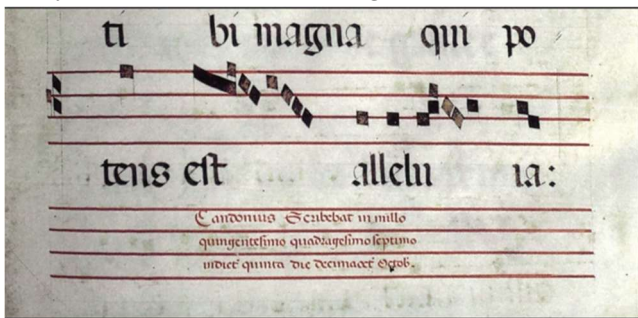 ti bi magna qui po
tens est allelu ia:
Candonius Scribebat in millo
quingentesimo quadragesimo septimo
indict quinta die decimaoct Octob.